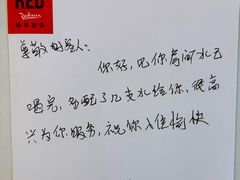 RED
Radisson
尊敬的客人：
你好，见你房间水已
喝完，多配了几支水给你，很高
兴为你服务，祝你入住愉快